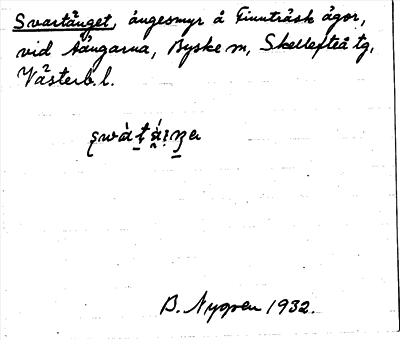 Svartånget, ångesmyr å Finnträsk ägor,
vid Åängarna, Byske sn, Skellefteå tg,
Västerb. l.
B. Nygren 1932.